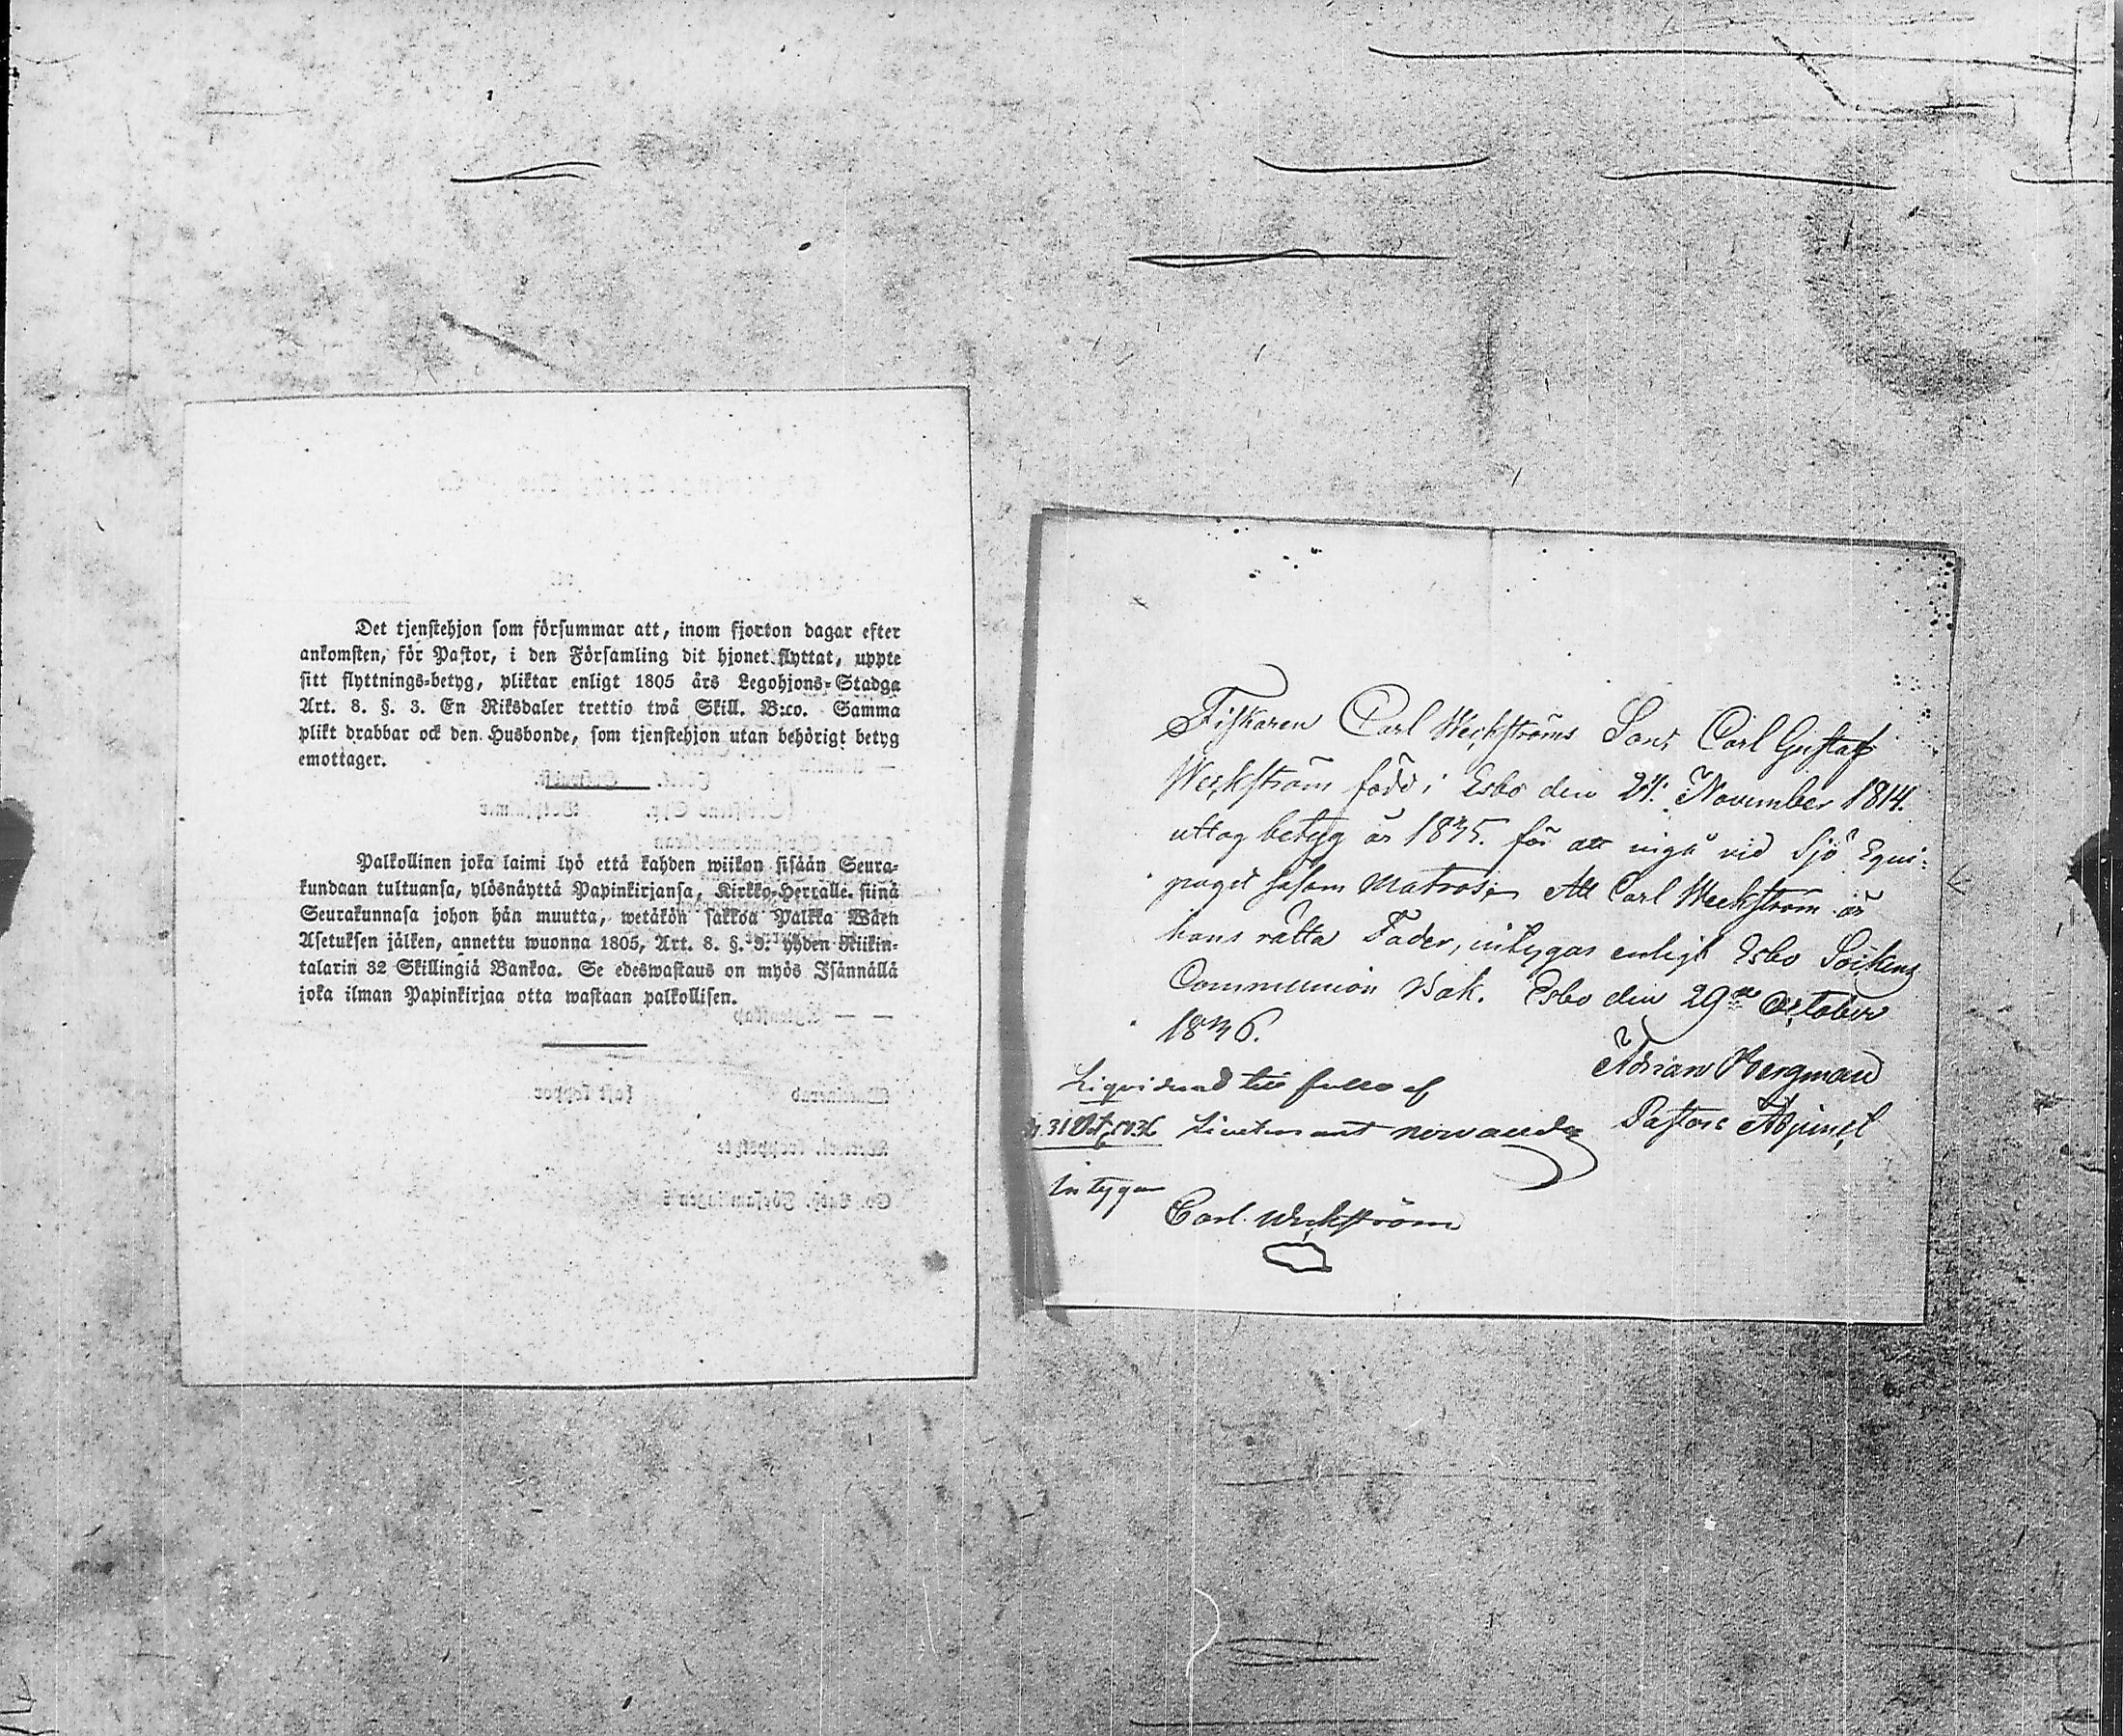 Det tjenstehjon som försummar att, inom fjorton dagar efter
ankomsten, för Pastor, i den Församling dit hjonet flyttat, uppte
sitt flyttnings-betyg, pliktar enligt 1805 års Legohjons-Stadga
Art. 8. §. 3. En Riksdaler trettio twå Skill. B:co. Samma
plikt drabbar ock den Husbonde, som tjenstehjon utan behörigt betyg
emottager.
Palkollinen joka laimi lyö että kahden wiikon sisään Seura-
kundaan tultuansa, ylösnäyttä Papinkirjansa, Kirkko-Herralle siinä
Seurakunnasa johon hän muutta, wetäkön sakkoa Palkka Wäen
Asetuksen jälken, annettu wuonna 1805, Art. 8. §. 3. yhden Riikin-
talarin 32 Skillingiä Bankoa. Se edeswastaus on myös Isännällä
joka ilman Papinkirjaa otta wastaan palkollisen.
Fiskaren Carl Weckströms Son, Carl Gustaf
Weckström född i Esbo den 24. November 1814.
uttog betyg år 1835. för att ingå vid Sjö Equi-
paget såsom Matros; Att Carl Weckström är
hans rätta Fader, intygas enligt Esbo Sockens
Communion Bok. Esbo den 29de October
1836.
Adrian Bergman
Pastors Adjunct
Liqviderad till fullo af
31 Oct 1836 Lieutenant
Intygar
Carl Weckström